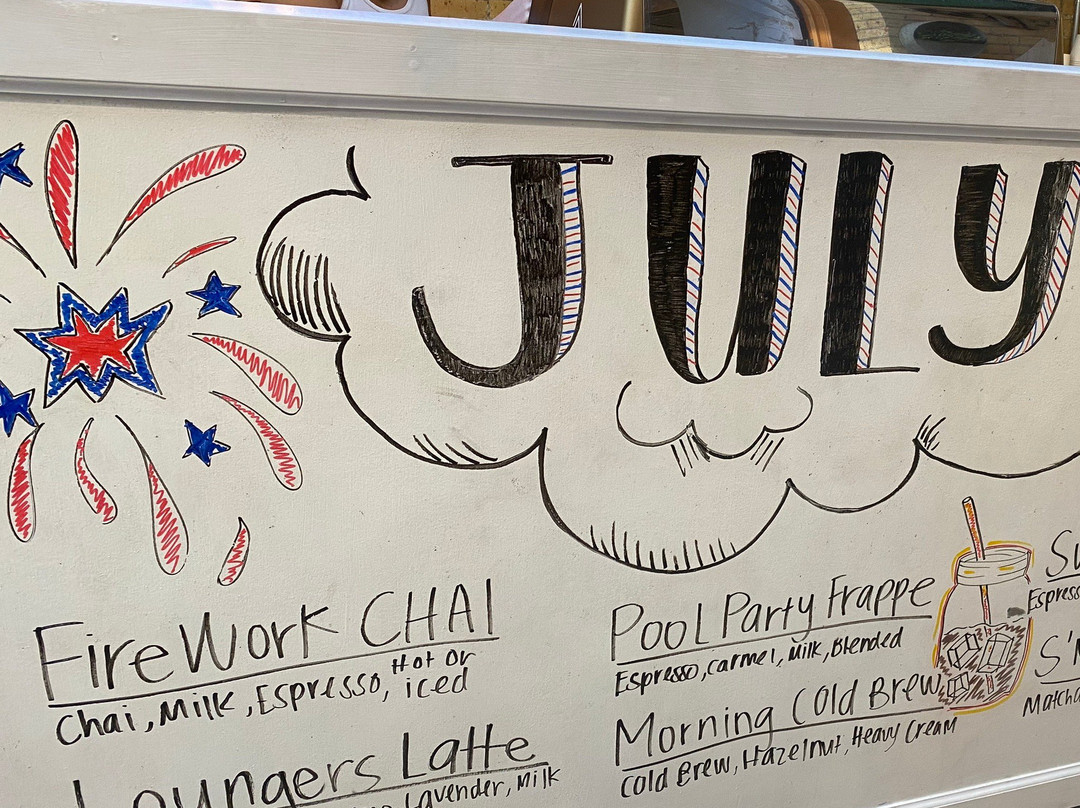 JULY
FireWork CHAI
Chai, Milk, Espresso, Hot or iced
Loungers Latte
Lavender, Milk
Pool Party Frappe
Espresso, carmel, Milk, Blended
Morning Cold Brew
Cold Brew, Hazelnut, Heavy Cream
Matcha